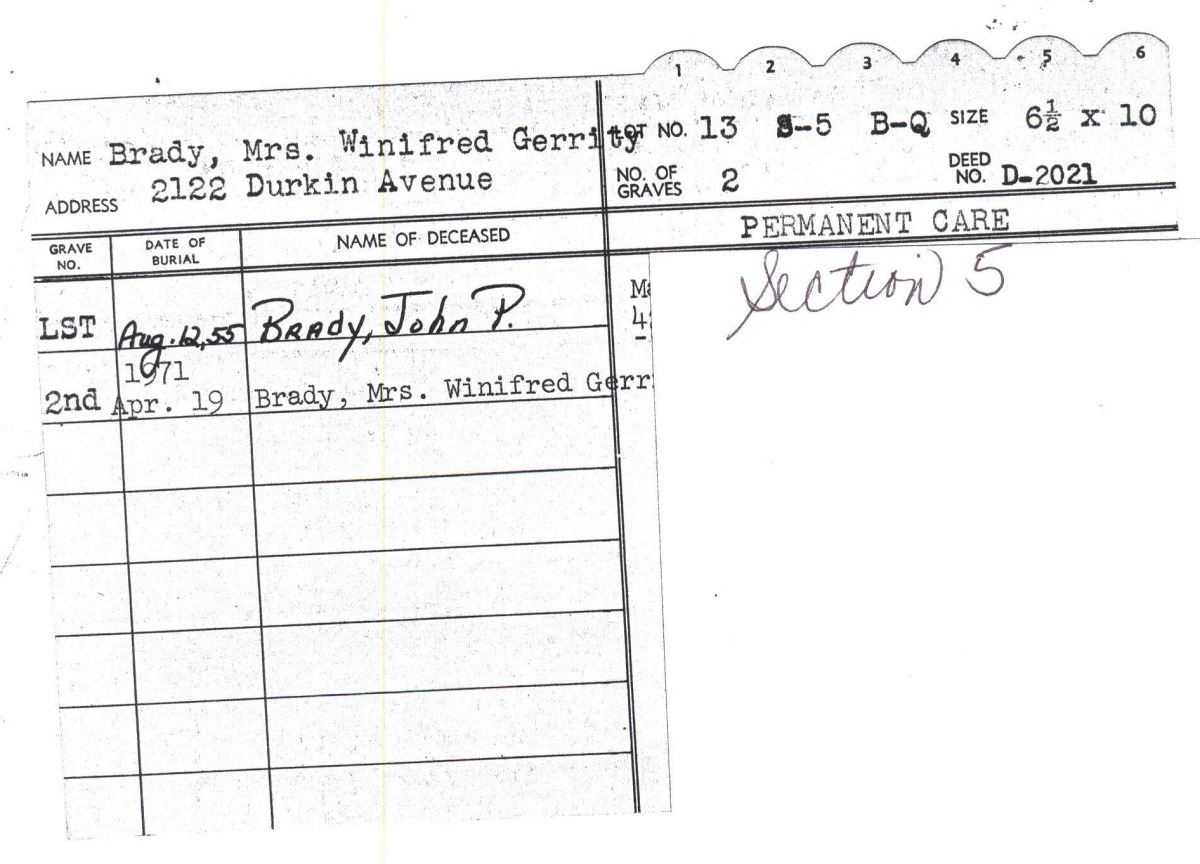 1 2 3 4 5 6
NAME Brady, Mrs. Winifred Gerrity
LOT NO. 13 S-5 B-Q SIZE 6½ x 10
ADDRESS 2122 Durkin Avenue
NO. OF GRAVES 2 DEED NO. D-2021
PERMANENT CARE
GRAVE NO. DATE OF BURIAL NAME OF DECEASED
Section 5
LST Aug. 12, 55 BRADY, John P.
1971
2nd Apr. 19 Brady, Mrs. Winifred Gerr